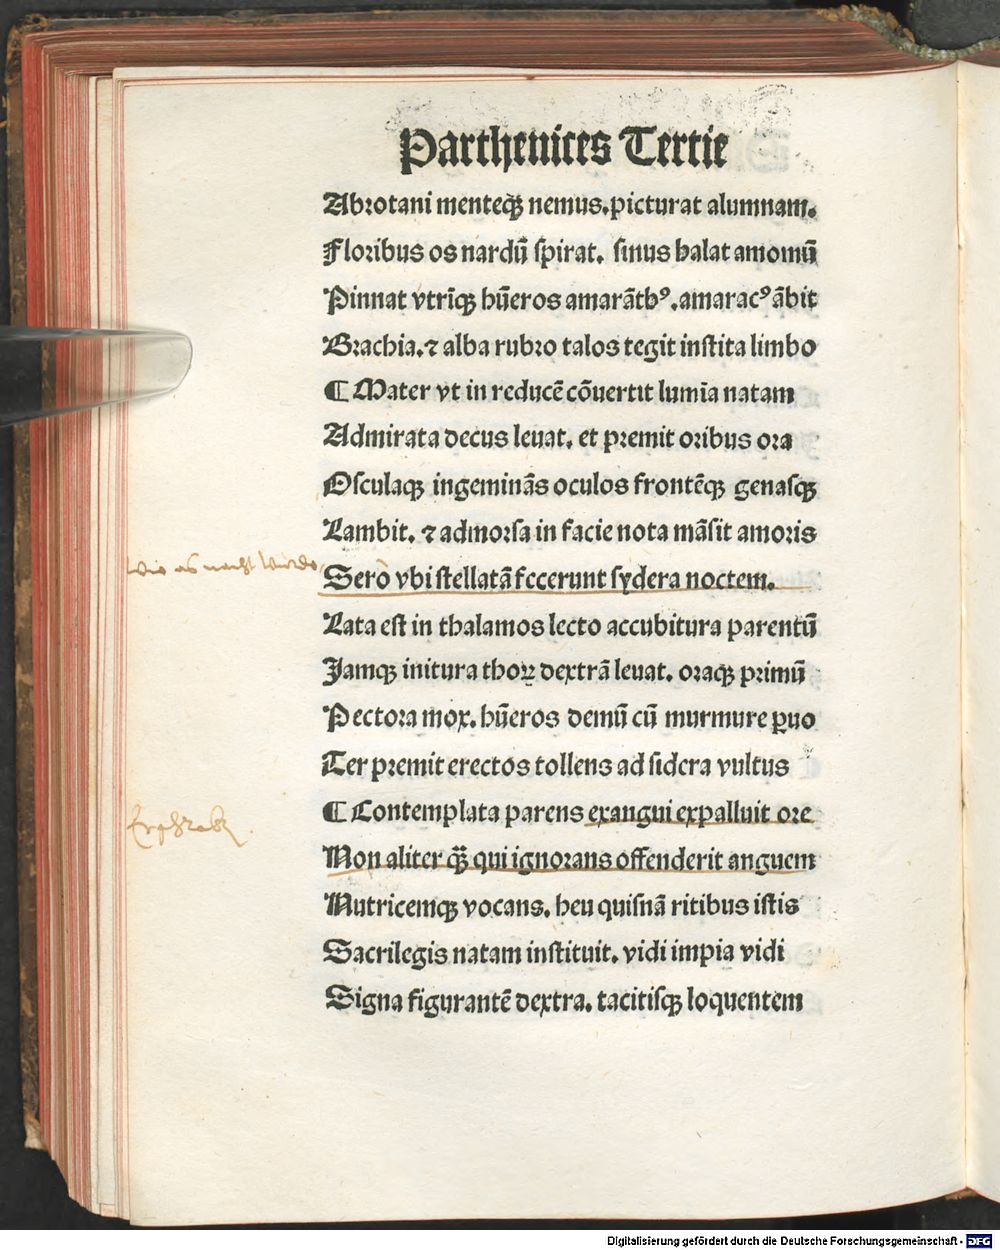 Parthenices Tertie
Abrotani menteqꝫ nemus.picturat alumnam.
Floribus os nardū spirat. sinus halat amomū
Pinnat vtrīqꝫ hūeros amarāthꝰ.amaracꝰ ābit
Brachia.⁊ alba rubro talos tegit instita limbo
¶ Mater vt in reducē cōuertit lumīa natam
Admirata decus leuat. et premit oribus ora
Osculaqꝫ ingeminās oculos frontēqꝫ genasqꝫ
Lambit. ⁊ admorsa in facie nota māsit amoris
wie es nacht wirdt
Sero vbi stellatā feccerunt sydera noctem.
Lata est in thalamos lecto accubitura parentū
Jamqꝫ initura thoꝝ dextrā leuat. oraqꝫ primū
Pectora mox. hūeros demū cū murmure ꝑuo
Ter premit erectos tollens ad sidera vultus
¶ Contemplata parens exangui expalluit ore
Non aliter qꝫ̄ qui ignorans offenderit anguem
Nutricemqꝫ vocans. heu quisnā ritibus istis
Sacrilegis natam instituit. vidi impia vidi
Signa figurantē dextra. tacitisqꝫ loquentem
Digitalisierung gefördert durch die Deutsche Forschungsgemeinschaft - DFG